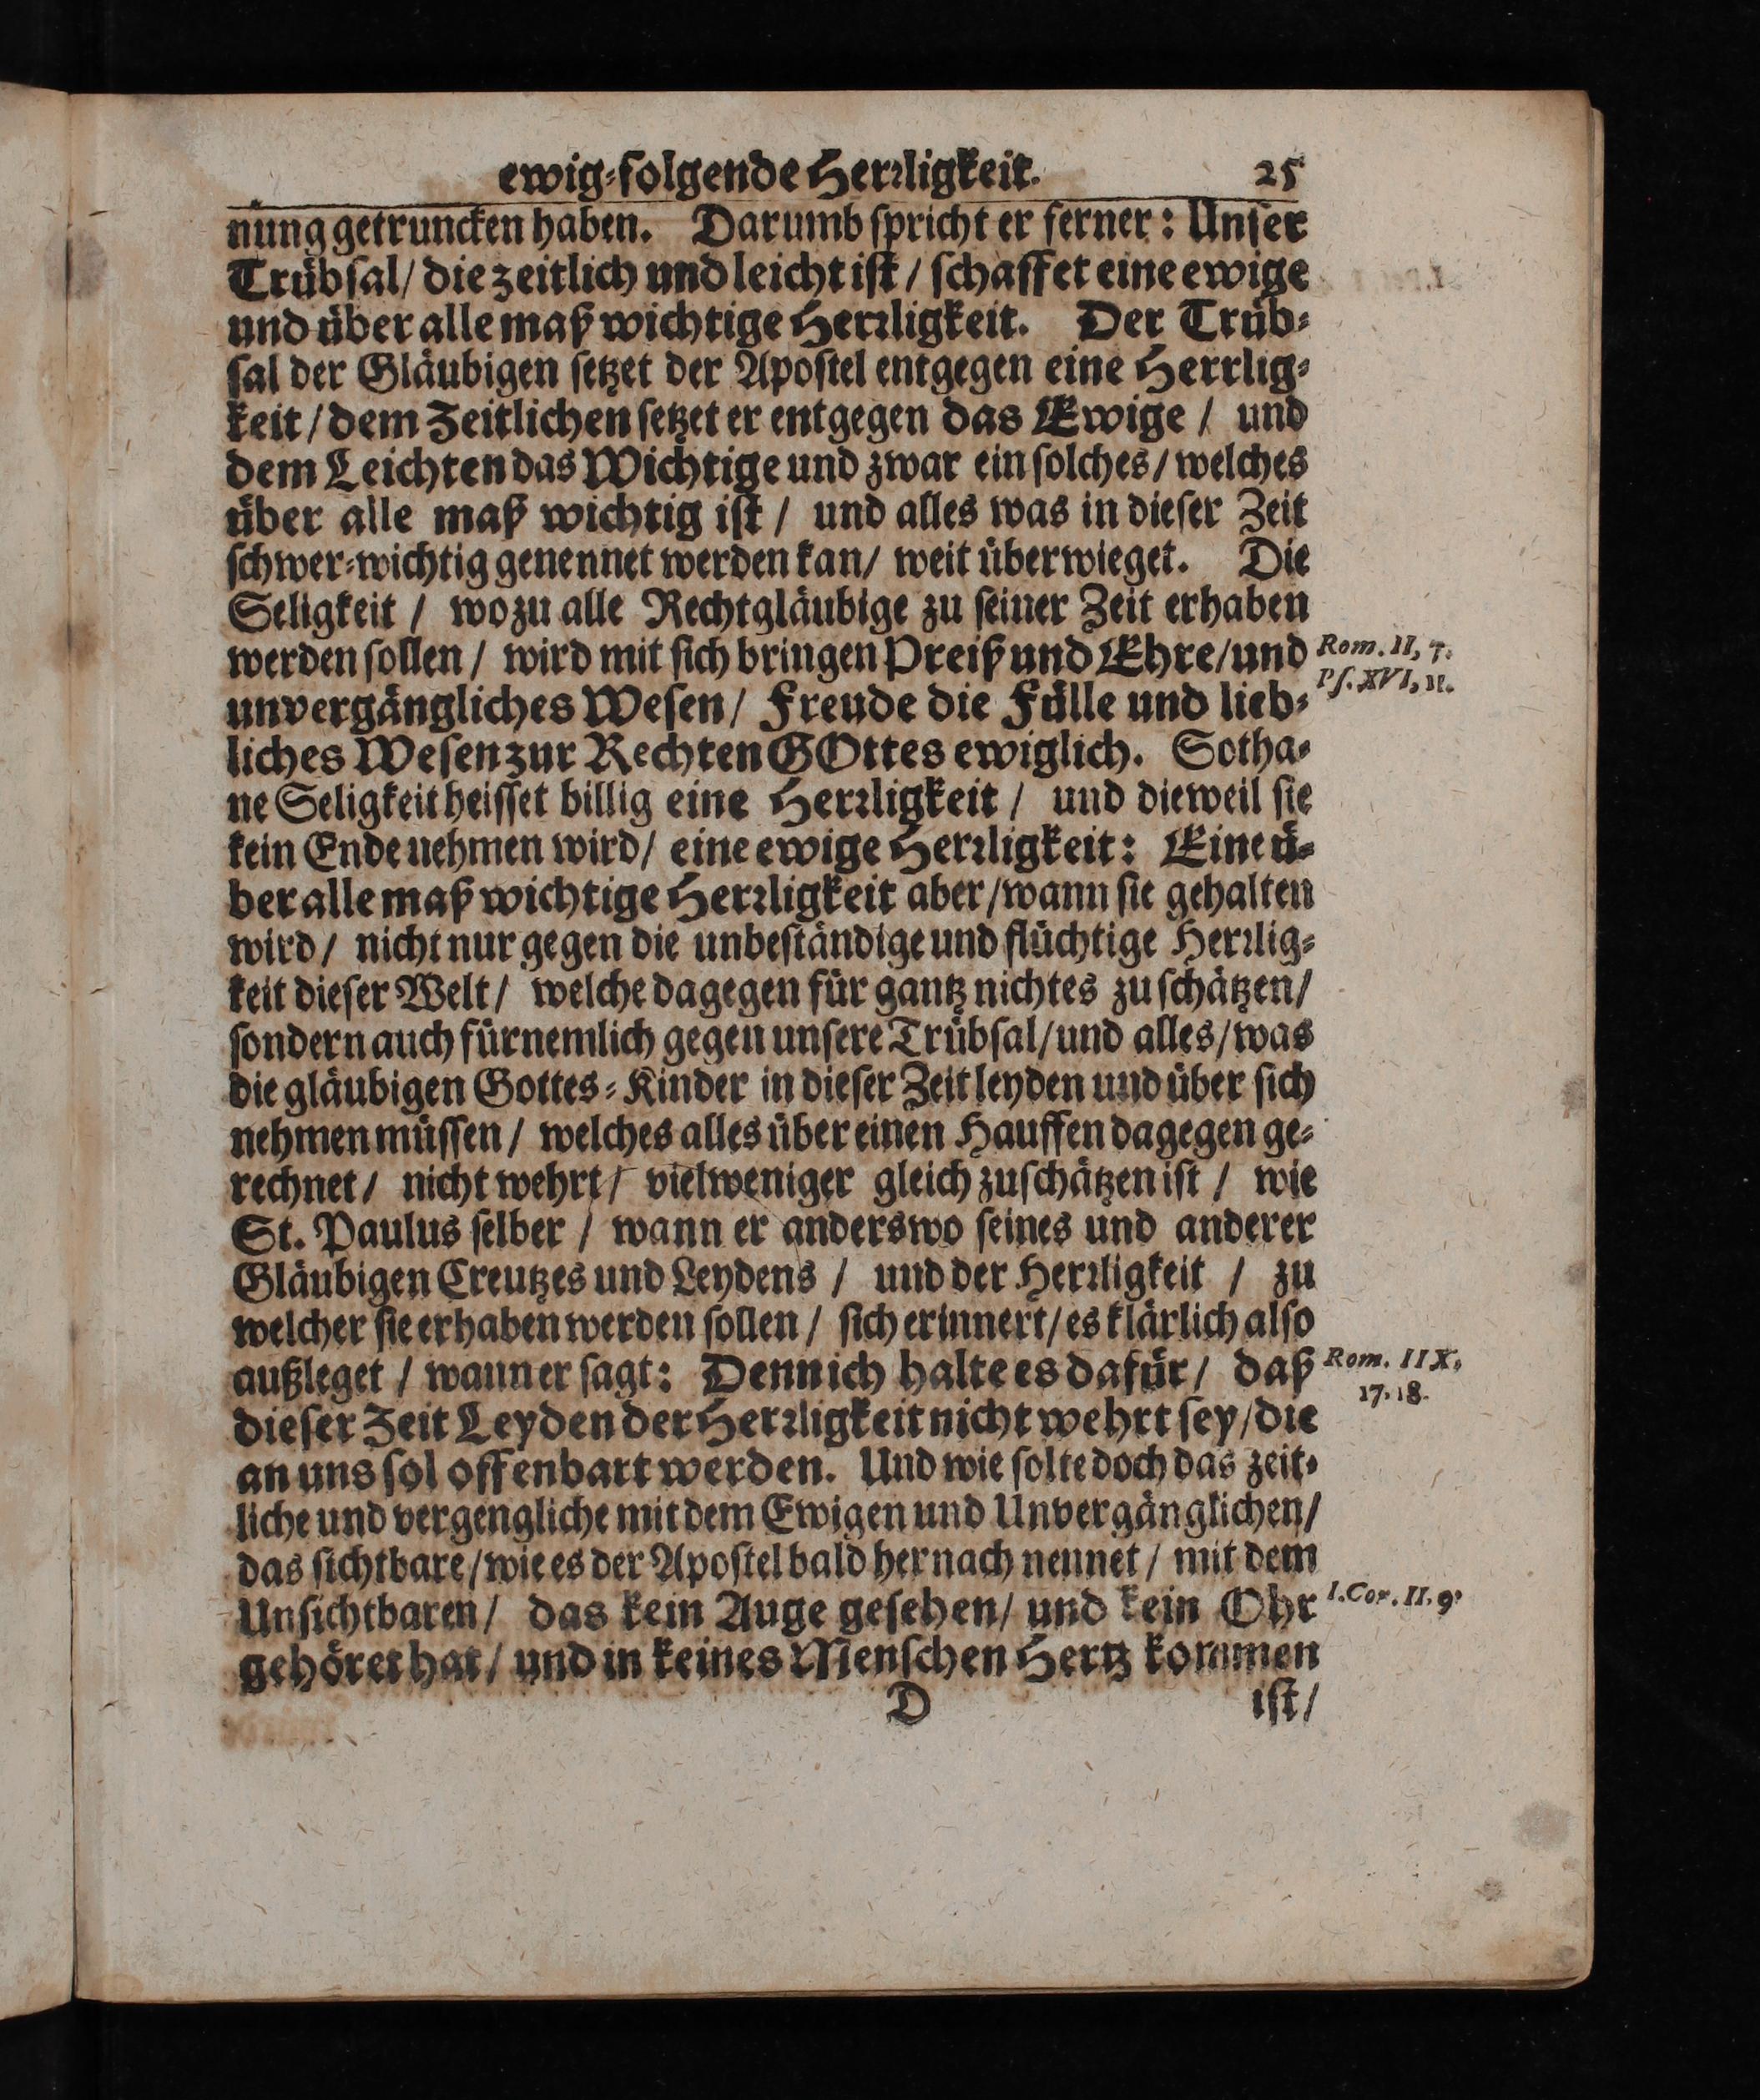 ewig-folgende Herꝛligkeit. 25
nüng getruncken haben. Darumb ſpricht er ferner: Unſer
Trübſal/ die zeitlich und leicht iſt / ſchaffet eine ewige
und über alle maß wichtige Herꝛligkeit. Der Trüb-
ſal der Gläubigen ſetzet der Apoſtel entgegen eine Herrlig-
keit / dem Zeitlichen ſetzet er entgegen das Ewige / und
dem Leichten das Wichtige und zwar ein ſolches / welches
über alle maß wichtig iſt / und alles was in dieſer Zeit
ſchwer-wichtig genennet werden kan/ weit überwieget. Die
Seligkeit / wozu alle Rechtgläubige zu ſeiner Zeit erhaben
werden ſollen / wird mit ſich bringen Preiß und Ehre/und Rom. II, 7.
unvergängliches Weſen/ Freude die Fülle und lieb- Pſ. XVI, 11.
liches Weſen zur Rechten GOttes ewiglich. Sotha-
ne Seligkeit heiſſet billig eine Herꝛligkeit / und dieweil ſie
kein Ende nehmen wird/ eine ewige Herꝛligkeit: Eine ü-
ber alle maß wichtige Herꝛligkeit aber/wann ſie gehalten
wird / nicht nur gegen die unbeſtändige und flüchtige Herꝛlig-
keit dieſer Welt / welche dagegen für gantz nichtes zu ſchätzen/
ſondern auch fürnemlich gegen unſere Trübſal/und alles/was
die gläubigen Gottes-Kinder in dieſer Zeit leyden und über ſich
nehmen müſſen / welches alles über einen Hauffen dagegen ge-
rechnet / nicht wehrt / vielweniger gleich zuſchätzen iſt / wie
St. Paulus ſelber / wann er anderswo ſeines und anderer
Gläubigen Creutzes und Leydens / und der Herꝛligkeit / zu
welcher ſie erhaben werden ſollen / ſich erinnert/es klärlich alſo
außleget / wann er ſagt: Denn ich halte es dafür/ daß Rom. IIX,
17. 18.
dieſer Zeit Leyden der Herꝛligkeit nicht wehrt ſey/die
an uns ſol offenbart werden. Und wie ſolte doch das zeit-
liche und vergengliche mit dem Ewigen und Unvergänglichen/
das ſichtbare/wie es der Apoſtel bald hernach nennet / mit dem
Unſichtbaren/ das kein Auge geſehen/ und kein Ohr I. Cor. II. 9.
gehöret hat/ und in keines Menſchen Hertz kommen
D iſt/